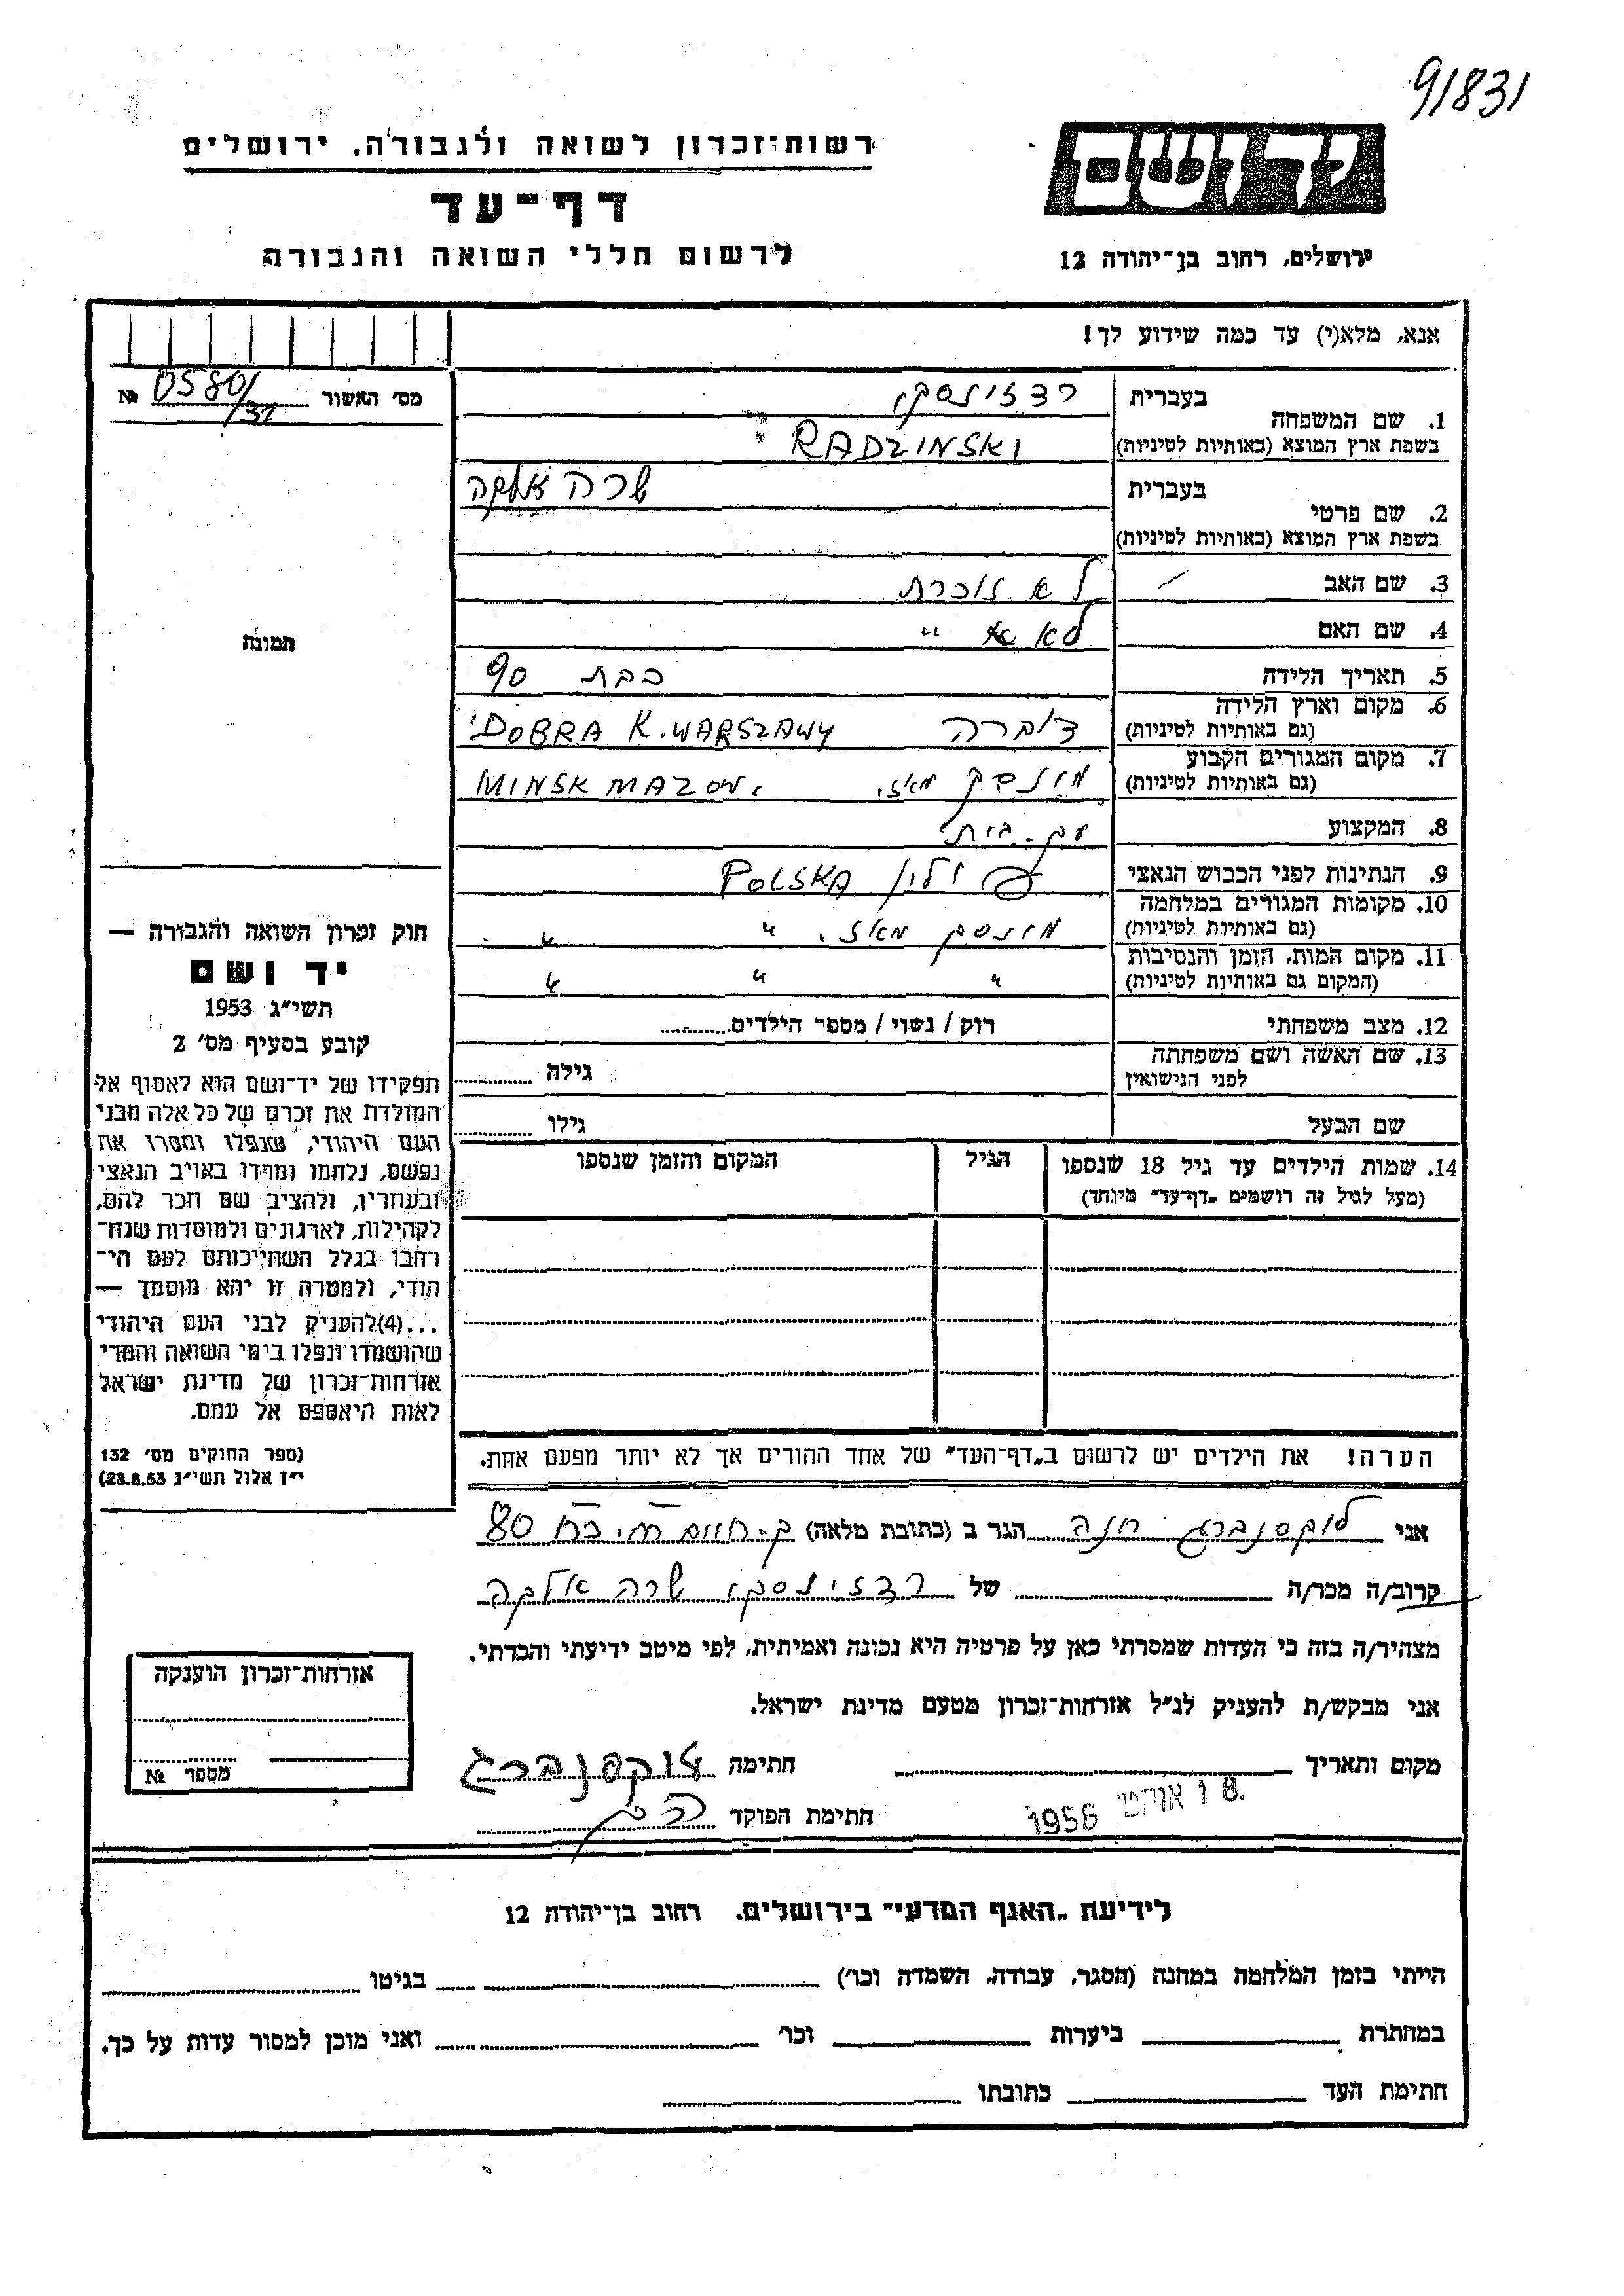 91831
רשות־זכרון לשואה ולגבורה, ירושלים
ידושם
דף־עד
לרשום חללי השואה והגבורה
ירושלים, רחוב בן־יהודה 12
אנא, מלא(י) עד כמה שידוע לך!
מס׳ האשור 0580/31 №
1. שם המשפחה בעברית רדזינסקי
בשפת ארץ המוצא (באותיות לטיניות) RADZINSKI
2. שם פרטי בעברית שרה אלקה
בשפת ארץ המוצא (באותיות לטיניות)
3. שם האב לא זוכרת
4. שם האם לא "
תמונה
5. תאריך הלידה כבת 90
6. מקום וארץ הלידה (גם באותיות לטיניות) דוברה DOBRA K. WARSZAWY
7. מקום המגורים הקבוע (גם באותיות לטיניות) מינסק מאז. MINSK MAZOW.
8. המקצוע עק. בית
9. הנתינות לפני הכבוש הנאצי פולין POLSKA
10. מקומות המגורים במלחמה (גם באותיות לטיניות) מינסק מאז. " "
11. מקום המות, הזמן והנסיבות (המקום גם באותיות לטיניות) " " "
12. מצב משפחתי רוק / נשוי / מספר הילדים
13. שם האשה ושם משפחתה לפני הנישואין גילה
שם הבעל גילו
14. שמות הילדים עד גיל 18 שנספו הגיל המקום והזמן שנספו
(מעל לגיל זה רושמים „דף־עד" מיוחד)
חוק זכרון השואה והגבורה —
יד ושם
תשי״ג 1953
קובע בסעיף מס׳ 2
תפקידו של יד־ושם הוא לאסוף אל
המולדת את זכרם של כל אלה מבני
העם היהודי, שנפלו ומסרו את
נפשם, נלחמו ומרדו באויב הנאצי
ובעוזריו, ולהציב שם וזכר להם,
לקהילות, לארגונים ולמוסדות שנח־
רחבו בגלל השתייכותם לעם הי־
הודי, ולמטרה זו יהא מוסמך —
...(4)להעניק לבני העם היהודי
שהושמדו ונפלו בימי השואה והמרי
אזרחות־זכרון של מדינת ישראל
לאות היאספם אל עמם.
(ספר החוקים מס׳ 132
י״ז אלול תשי״ג 28.8.53)
הערה! את הילדים יש לרשום ב„דף־העד" של אחד ההורים אך לא יותר מפעם אחת.
אני לוקסנברג חנה הגר ב (כתובת מלאה) ק. חיים 80
קרוב/ה מכר/ה של רדזינסקי שרה אלקה
מצהיר/ה בזה כי העדות שמסרתי כאן על פרטיה היא נכונה ואמיתית, לפי מיטב ידיעתי והכרתי.
אני מבקש/ת להעניק לנ״ל אזרחות־זכרון מטעם מדינת ישראל.
מקום ותאריך חתימה לוקסנברג
1956 18
חתימת הפוקד
אזרחות־זכרון הוענקה
מספר №
לידיעת „האגף המדעי" בירושלים, רחוב בן־יהודה 12
הייתי בזמן המלחמה במחנה (הסגר, עבודה, השמדה וכו׳) בגיטו
במחתרת ביערות וכו׳ ואני מוכן למסור עדות על כך.
חתימת העד כתובתו